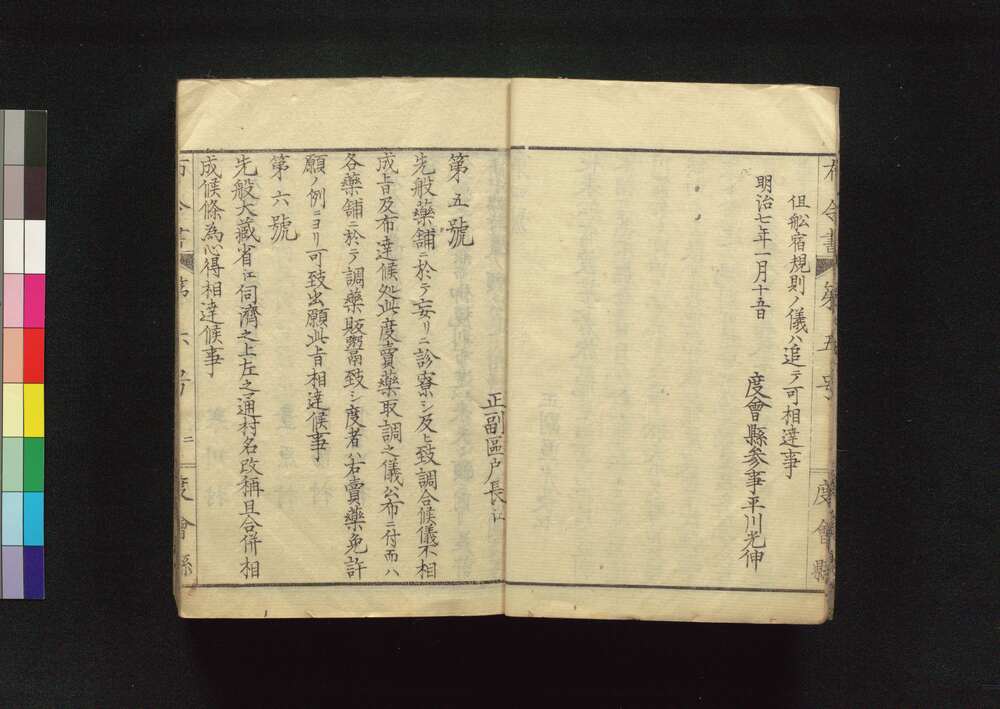 布令書 第五号 度會縣
但舩宿規則ノ儀ハ追テ可相達事
明治七年一月十五日 度會縣参事平川光伸
正副區戸長江
第五號
先般藥舗ニ於テ妄リニ診寮シ及ヒ致調合候儀不相
成旨及布達候処此度賣藥取調之儀公布ニ付而ハ
各藥舗ニ於テ調藥販鬻致シ度者ハ右賣藥免許
願ノ例ニヨリ可致出願此旨相達候事
第六號
先般大藏省江伺濟之上左之通村名改稱且合併相
成候條為心得相達候事
布令書 第六号 二 度會縣